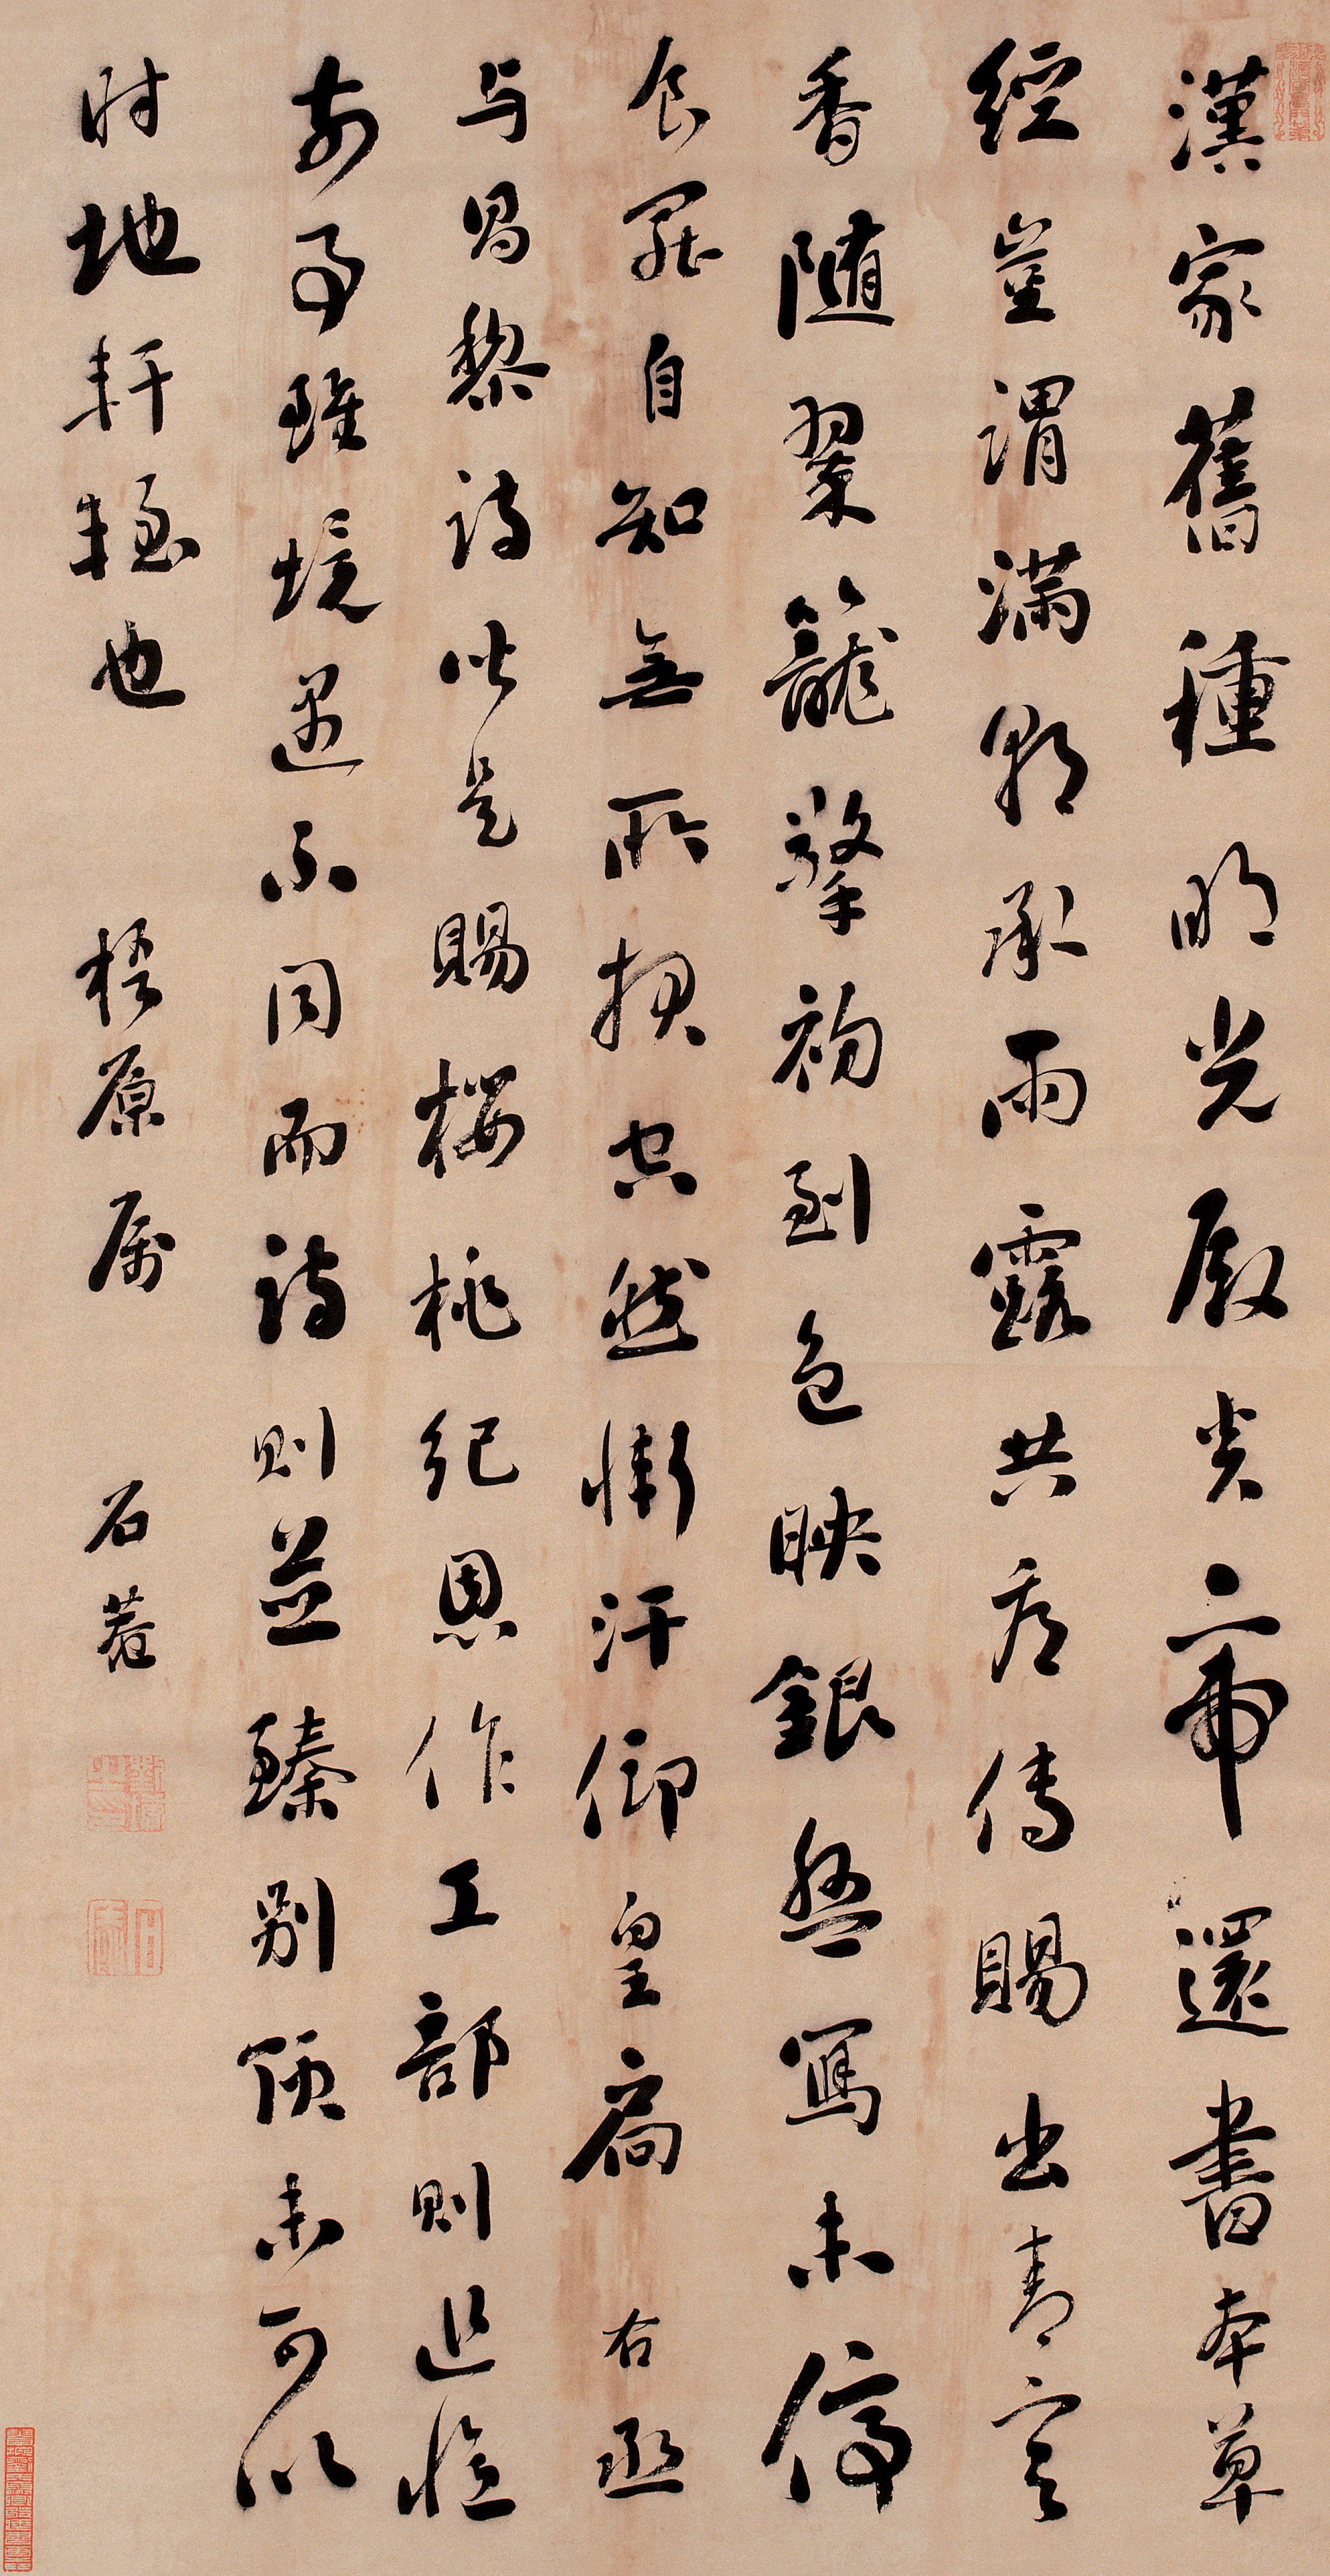 漢家舊種明光殿炎帝還書本草
經豈謂滿朝承雨露共看傳賜出青冥
香隨翠籠擎初到色映銀盤寫未停
食罷自知無所報空然慚汗仰皇扃右丞
与昌黎詩皆是賜櫻桃紀恩作工部則追憶
前事雖境遇不同而詩則並臻別頭未可以
時地軒輊也
梧原属
石菴